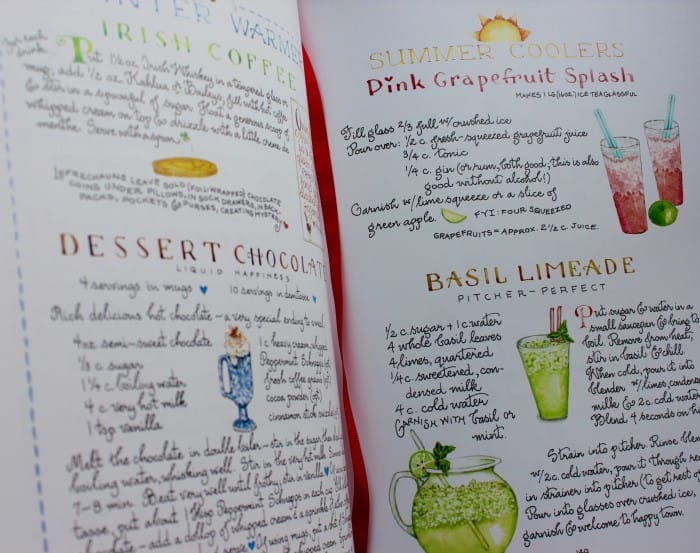 WINTER WARME
IRISH COFFEE
Put 1½ oz. Irish Whiskey in a tempered glass or
mug, add ½ oz. Kahlua or Baileys, fill with hot coffee
& stir in a spoonful of sugar. Float a generous scoop of
whipped cream on top & drizzle with a little creme de
menthe. Serve with a spoon.
LEPRECHAUNS LEAVE GOLD (FOIL WRAPPED) CHOCOLATE
COINS UNDER PILLOWS, IN SOCK DRAWERS, IN BACK-
PACKS, POCKETS & PURSES, CREATING MYSTERY
DESSERT CHOCOLAT
LIQUID HAPPINESS
4 servings in mugs 10 servings in demitasse
Rich delicious hot chocolate – a very special ending to a meal.
4 oz. semi-sweet chocolate
⅓ c. sugar
1¼ c. boiling water
4 c. very hot milk
1 tsp. vanilla
1 c. heavy cream, whipped
Peppermint Schnapps (opt.)
fresh coffee grains (opt.)
cocoa powder (opt.)
cinnamon stick
Melt the chocolate in double boiler – stir in the sugar, then
boiling water, whisking well. Stir in the very hot milk.
7-8 min. Beat very well until frothy, stir in vanilla
about 1 Tbsp. Peppermint Schnapps in each cup
chocolate – add a dollop of whipped cream & a sprinkle
SUMMER COOLERS
Pink Grapefruit Splash
MAKES 1 LG. (16oz.) ICE TEA GLASSFUL
Fill glass ⅔ full w/ crushed ice
Pour over: ½ c. fresh-squeezed grapefruit juice
¾ c. tonic
¼ c. gin (or rum, both good; this is also
good without alcohol!)
Garnish w/ lime squeeze or a slice of
green apple.
FYI: FOUR SQUEEZED
GRAPEFRUITS = APPROX. 2½ C. JUICE.
BASIL LIMEADE
PITCHER-PERFECT
½ c. sugar + 1 c. water
4 whole basil leaves
4 limes, quartered
¼ c. sweetened, con-
densed milk
4 c. cold water
GARNISH WITH basil or
mint.
Put sugar & water in a
small saucepan & bring to
boil. Remove from heat;
stir in basil & chill.
When cold, pour it into
blender w/ limes, condens
milk & 2 c. cold water
Blend 4 seconds on h
Strain into pitcher. Rinse blen
w/ 2 c. cold water, pour it through re
in strainer into pitcher (to get rest of
Pour into glasses over crushed ice
garnish & welcome to happy town.